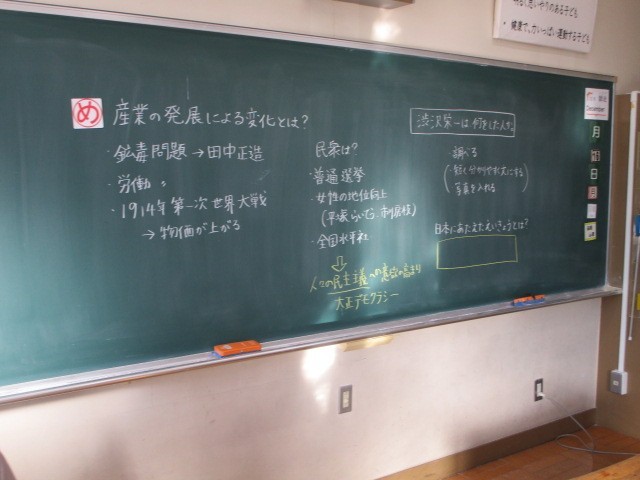 明るく思いやりのある子ども
・健康で、力いっぱい運動する子ども
め 産業の発展による変化とは?
・鉱毒問題→田中正造
・労働 〃
・1914年第一次世界大戦
→物価が上がる
民衆は?
・普通選挙
・女性の地位向上
(平塚らいてう、市川房枝)
・全国水平社
人々の民主主義への意識の高まり
大正デモクラシー
渋沢栄一は何をした人か。
調べる
・短く分かりやすい文にする
・写真を入れる
日本にあたえたえいきょうとは?
December
月
日